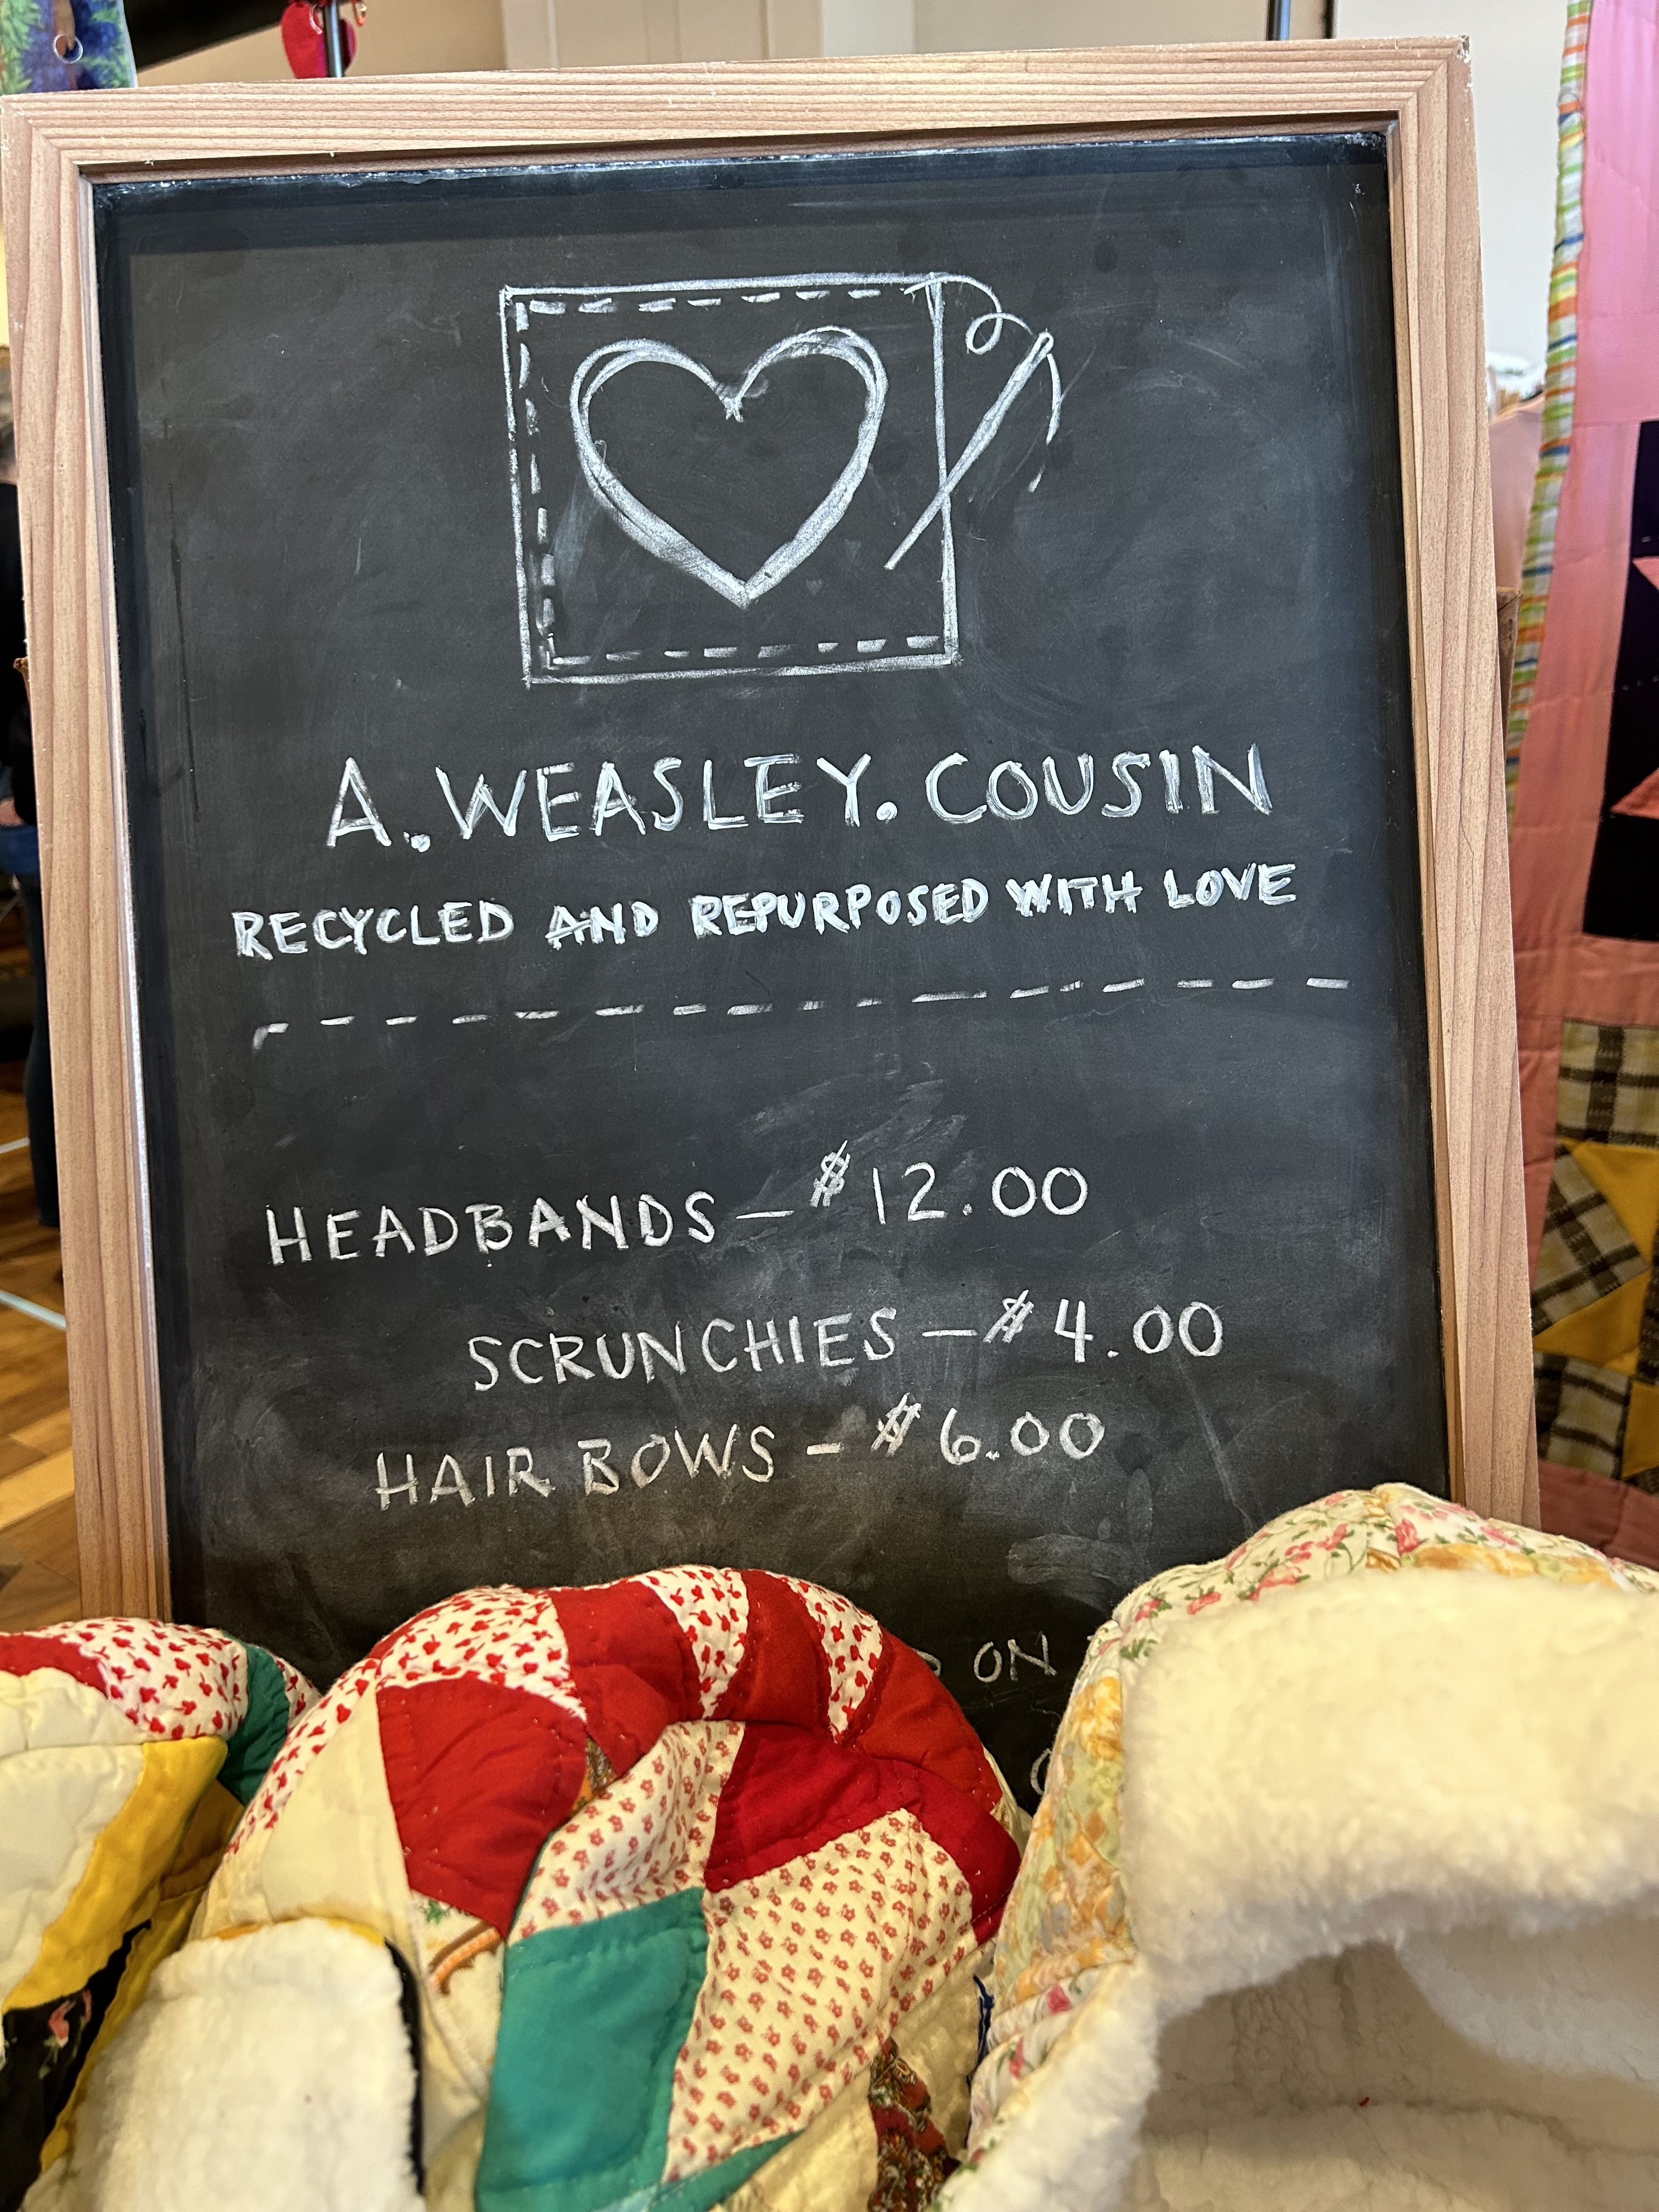 A. WEASLEY. COUSIN
RECYCLED AND REPURPOSED WITH LOVE
HEADBANDS - $12.00
SCRUNCHIES - $4.00
HAIR BOWS - $6.00
ON